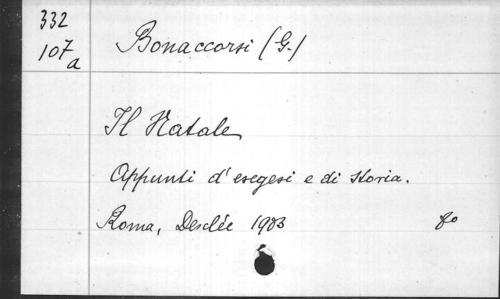 332
107
a
Bonaccorsi (G.)
Il Natale
Appunti d'esegesi e di Storia.
Roma, Desclée 1903